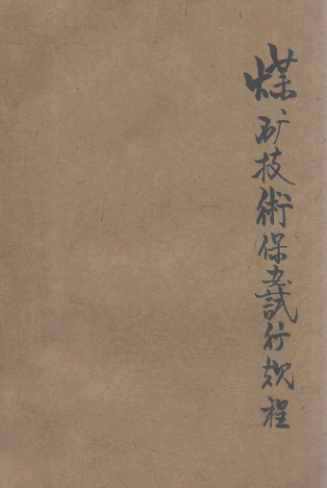 煤矿技術保安試行规程